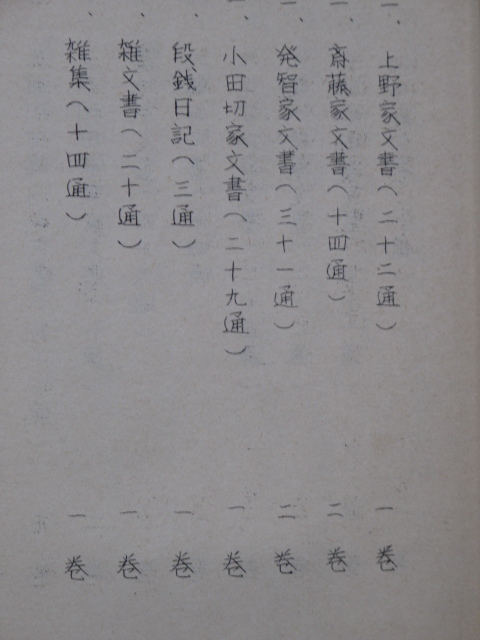 一、上野家文書(二十二通) 一巻
一、斎藤家文書(十四通) 二巻
一、発智家文書(三十一通) 二巻
一、小田切家文書(二十九通) 一巻
段銭日記(三通) 一巻
雑文書(二十通) 一巻
雑集(十四通) 一巻